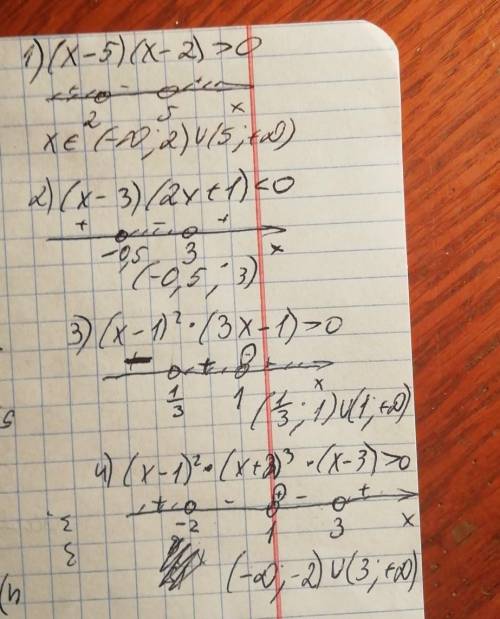 1) (x-5)(x-2)>0
+ - +
2 5 x
x∈(-∞; 2)∪(5; +∞)
2) (x-3)(2x+1)<0
+ - +
-0,5 3 x
(-0,5; 3)
3) (x-1)²·(3x-1)>0
- + +
1/3 1 x
(1/3; 1)∪(1; +∞)
4) (x-1)²·(x+2)³·(x-3)>0
+ - - +
-2 1 3 x
(-∞; -2)∪(3; +∞)